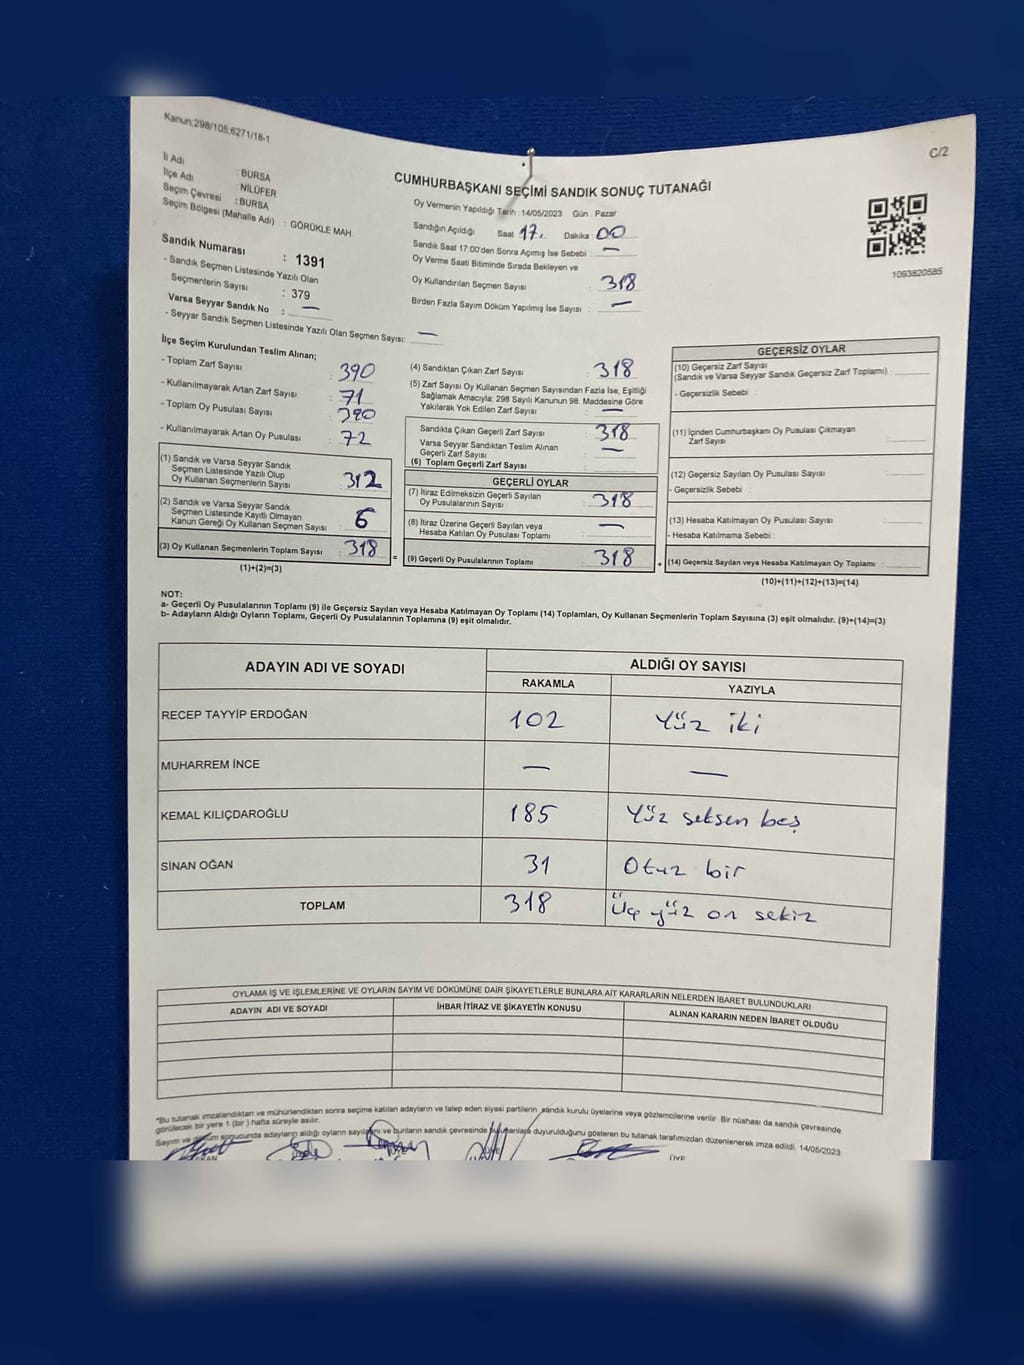 Kanun;298/105,6271/18-1
C/2
İl Adı : BURSA
İlçe Adı : NİLÜFER
Seçim Çevresi : BURSA
Seçim Bölgesi (Mahalle Adı) : GÖRÜKLE MAH
Sandık Numarası : 1391
- Sandık Seçmen Listesinde Yazılı Olan
Seçmenlerin Sayısı : 379
Varsa Seyyar Sandık No : —
- Seyyar Sandık Seçmen Listesinde Yazılı Olan Seçmen Sayısı: —
CUMHURBAŞKANI SEÇİMİ SANDIK SONUÇ TUTANAĞI
Oy Vermenin Yapıldığı Tarih :14/05/2023 Gün : Pazar
Sandığın Açıldığı Saat : 17. Dakika : 00
Sandık Saat 17:00'den Sonra Açımış İse Sebebi : —
Oy Verme Saati Bitiminde Sırada Bekleyen ve
Oy Kullandırılan Seçmen Sayısı : 318
Birden Fazla Sayım Döküm Yapılmış İse Sayısı : —
1093820585
İlçe Seçim Kurulundan Teslim Alınan;
- Toplam Zarf Sayısı : 390
- Kullanılmayarak Artan Zarf Sayısı : 71
- Toplam Oy Pusulası Sayısı : 390
- Kullanılmayarak Artan Oy Pusulası : 72
(1) Sandık ve Varsa Seyyar Sandık
Seçmen Listesinde Yazılı Olup
Oy Kullanan Seçmenlerin Sayısı 312
(2) Sandık ve Varsa Seyyar Sandık
Seçmen Listesinde Kayıtlı Olmayan
Kanun Gereği Oy Kullanan Seçmen Sayısı : 6
(3) Oy Kullanan Seçmenlerin Toplam Sayısı : 318
(1)+(2)=(3)
=
(4) Sandıktan Çıkan Zarf Sayısı : 318
(5) Zarf Sayısı Oy Kullanan Seçmen Sayısından Fazla İse, Eşitliği
Sağlamak Amacıyla; 298 Sayılı Kanunun 98. Maddesine Göre
Yakılarak Yok Edilen Zarf Sayısı : —
Sandıkta Çıkan Geçerli Zarf Sayısı : 318
Varsa Seyyar Sandıktan Teslim Alınan
Geçerli Zarf Sayısı : —
(6) Toplam Geçerli Zarf Sayısı :
GEÇERLİ OYLAR
(7) İtiraz Edilmeksizin Geçerli Sayılan
Oy Pusulalarının Sayısı : 318
(8) İtiraz Üzerine Geçerli Sayılan veya
Hesaba Katılan Oy Pusulası Toplamı : —
(9) Geçerli Oy Pusulalarının Toplamı : 318
+
GEÇERSİZ OYLAR
(10) Geçersiz Zarf Sayısı
(Sandık ve Varsa Seyyar Sandık Geçersiz Zarf Toplamı) :
- Geçersizlik Sebebi :
(11) İçinden Cumhurbaşkanı Oy Pusulası Çıkmayan
Zarf Sayısı :
(12) Geçersiz Sayılan Oy Pusulası Sayısı :
- Geçersizlik Sebebi :
(13) Hesaba Katılmayan Oy Pusulası Sayısı :
- Hesaba Katılmama Sebebi :
(14) Geçersiz Sayılan veya Hesaba Katılmayan Oy Toplamı :
(10)+(11)+(12)+(13)=(14)
NOT:
a- Geçerli Oy Pusulalarının Toplamı (9) ile Geçersiz Sayılan veya Hesaba Katılmayan Oy Toplamı (14) Toplamları, Oy Kullanan Seçmenlerin Toplam Sayısına (3) eşit olmalıdır. (9)+(14)=(3)
b- Adayların Aldığı Oyların Toplamı, Geçerli Oy Pusulalarının Toplamına (9) eşit olmalıdır.
ADAYIN ADI VE SOYADI ALDIĞI OY SAYISI
RAKAMLA YAZIYLA
RECEP TAYYİP ERDOĞAN 102 Yüz iki
MUHARREM İNCE — —
KEMAL KILIÇDAROĞLU 185 Yüz seksen beş
SİNAN OĞAN 31 Otuz bir
TOPLAM 318 Üç yüz on sekiz
OYLAMA İŞ VE İŞLEMLERİNE VE OYLARIN SAYIM VE DÖKÜMÜNE DAİR ŞİKAYETLERLE BUNLARA AİT KARARLARIN NELERDEN İBARET BULUNDUKLARI
ADAYIN ADI VE SOYADI İHBAR İTİRAZ VE ŞİKAYETİN KONUSU ALINAN KARARIN NEDEN İBARET OLDUĞU
*Bu tutanak imzalandıktan ve mühürlendikten sonra seçime katılan adayların ve talep eden siyasi partilerin sandık kurulu üyelerine veya gözlemcilerine verilir. Bir nüshası da sandık çevresinde
görülecek bir yere 1 (bir ) hafta süreyle asılır.
Sayım ve döküm sonucunda adayların aldığı oyların sayılarını ve bunların sandık çevresinde duyurulduğunu gösteren bu tutanak tarafımızdan düzenlenerek imza edildi. 14/05/2023
ÜYE